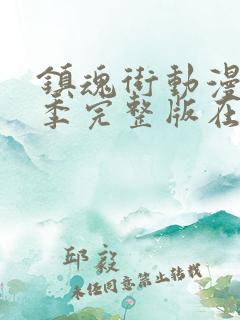 鎮魂街動漫
季完整版在
邱毅
未经同意禁止转载